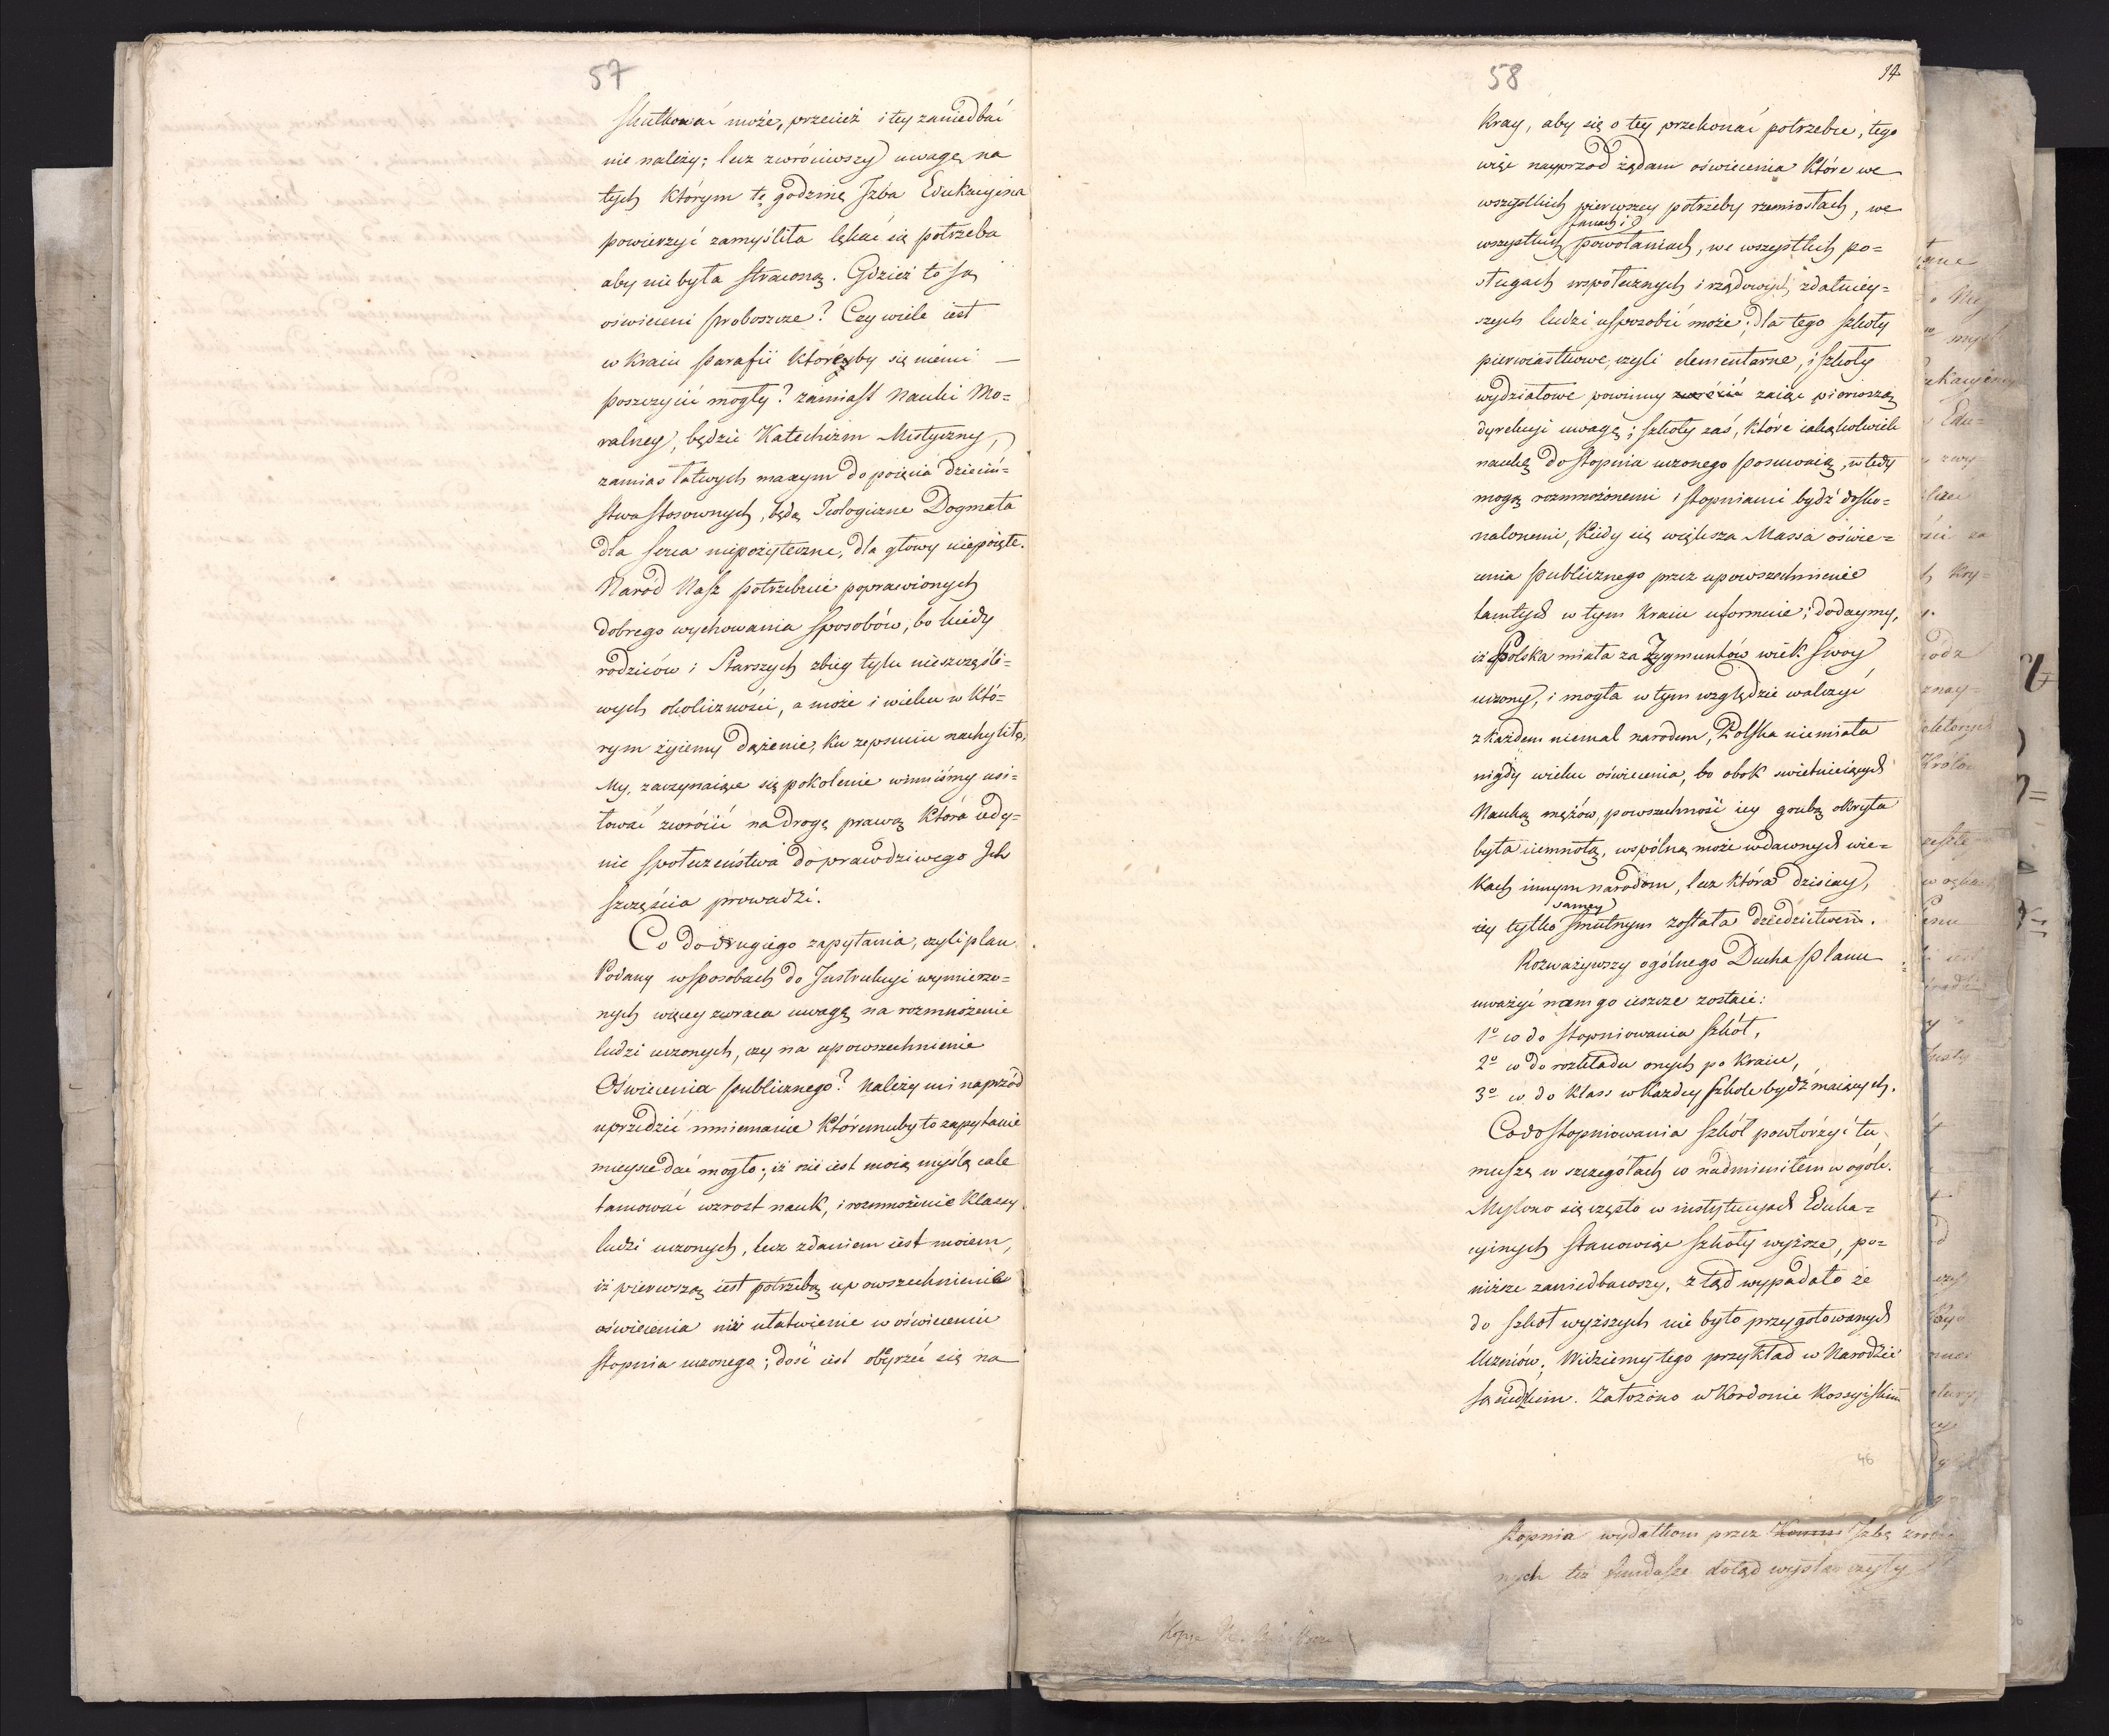 57
skutkować może, przecież i tey zaniedbać
nie należy; lecz zwróciwszy uwagę na
tych którym tę godzinę Izba Edukacyina
powierzyć zamyśliła lękać się potrzeba
aby nie była straconą. Gdzież to są
oświeceni proboszcze? Czy wiele iest
w kraiu parafii któreby się niemi —
poszczycić mogły? zamiast Nauki Mo=
ralney, będzie Katechizm Mistyczny,
zamiast łatwych maxym do poięcia dzieciń=
stwa stosownych, będą Teologiczne Dogmata
dla serca niepożyteczne, dla głowy niepoięte.
Naród Nasz potrzebuie poprawionych
dobrego wychowania sposobów, bo kiedy
rodziców i Starszych zbieg tylu nieszczęśli=
wych okoliczności, a może i wieku w Któ=
rym żyiemy dążenie, ku zepsuciu nachyliło,
My, zaczynaiące się pokolenie winniśmy usi=
łować zwrócić na drogę prawą która iedy=
nie społeczeństwa do prawdziwego Ich
szczęścia prowadzi.
Co do drugiego zapytania, czyli plan
Podany w sposobach do Instrukcyi wymierzo=
nych więcey zwraca uwagę na rozmnożenie
ludzi uczonych, czy na upowszechnienie
Oświecenia publicznego? należy mi naprzód
uprzedzić mniemanie któremuby to zapytanie
mieysce dać mogło; iż nie iest moią myślą cale
tamować wzrost nauk, i rozmnożenie klassy
ludzi uczonych, lecz zdaniem iest moiem,
iż pierwszą iest potrzebą upowszechnienie
oświecenia niż ułatwienie w oświeceniu
stopnia uczonego; dość iest obeyrzeć się na
58
14
Kray, aby się o tey przekonać potrzebie, tego
więc nayprzod żądam oświecenia które we
wszystkich pierwszey potrzeby rzemiosłach, we
stanach i
wszystkich powołaniach, we wszystkich po=
sługach społecznych i rządowych zdatniey=
szych ludzi usposobić może; dla tego szkoły
pierwiastkowe, czyli elementarne, i szkoły
wydziałowe powinny zwrócić zaiąć pierwszą
dyrekcyi uwagę; szkoły zaś, które iakąkolwiek
naukę do stopnia uczonego posuwaią, wtedy
mogą rozmnożonemi i stopniami bydź dosko=
nalonemi, kiedy się większa Massa oświe=
cenia publicznego przez upowszechnienie
tamtych w tym kraiu uformuie; dodaymy,
iż Polska miała za Zygmuntów wiek swoy
uczony, i mogła w tym względzie walczyć
z każdem niemal narodem, Polska nie miała
nigdy wieku oświecenia, bo obok swietnieiących
Nauką mężów, powszechność iey grubą okryta
była ciemnotą, wspólną może w dawnych wie=
kach innym narodom, lecz która dzisiay,
samey
iey tylko smutnym została dziedzictwem.
Rozważywszy ogólnego Ducha planu
uważyć nam go ieszcze zostaie:
1º co do stopniowania szkół,
2º co do rozkładu onych po kraiu,
3º co do klass w każdey szkole bydź maiących.
Co do stopniowania szkół powtórzyć tu
muszę w szczegółach co nadmieniłem w ogóle.
Mylono się często w instytucyach Eduka=
cyinych stanowiąc szkoły wyższe, po=
niższe zaniedbawszy, ztąd wypadało że
do szkoł wyższych nie było przygotowanych
Uczniów; Widziemy tego przykład w Narodzie
sąsiedzkim. Założono w Kordonie Rossyiskim
46
stopnia wydatkom przez Izbę
nych też fundusze dotąd wystarczyły